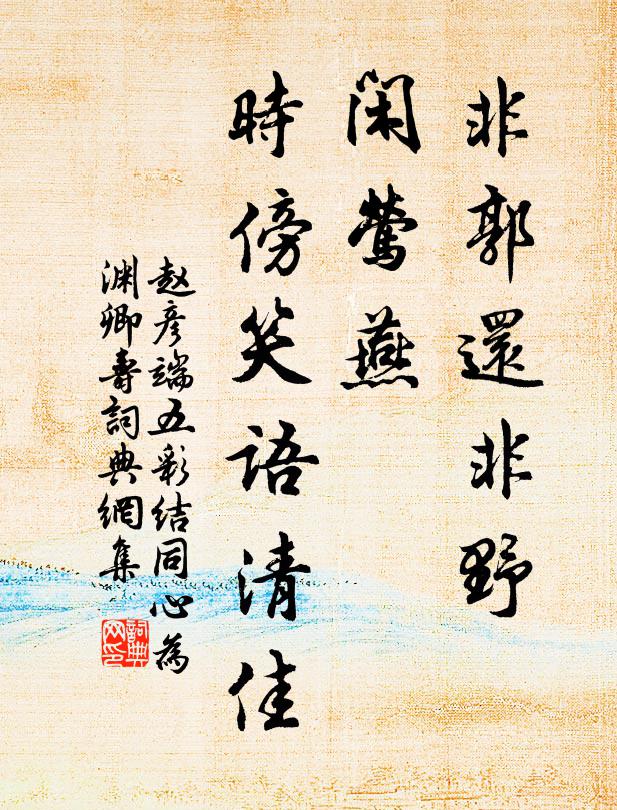 非郭還非野
閑鶯燕
時傍笑語清佳
赵彦端五彩結同心為
渊卿壽詞典網集
詞典网印